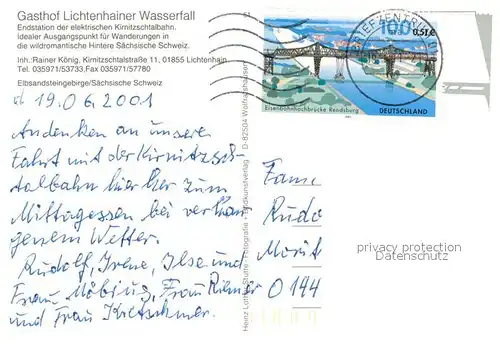 Gasthof Lichtenhainer Wasserfall
Endstation der elektrischen Kirnitzschtalbahn.
Idealer Ausgangspunkt für Wanderungen in
die wildromantische Hintere Sächsische Schweiz.
Inh.: Rainer König, Kirnitzschtalstraße 11, 01855 Lichtenhain
Tel. 035971/53733, Fax 035971/57780
Elbsandsteingebirge/Sächsische Schweiz
19.06.2001
Andenken an unsere
Fahrt mit der Kirnitzsch-
talbahn hierher zum
Mittagessen bei verhan-
genem Wetter.
Rudolf, Irene, Ilse und
Frau Möbius, Frau Riemer
und Frau Kretschmer.
D-82504 Wolfratshausen
BRIEFZENTRUM
100
0,51€
Eisenbahnhochbrücke Rendsburg
DEUTSCHLAND
Fam
Rudo
Moritz
0144
privacy protection
Datenschutz